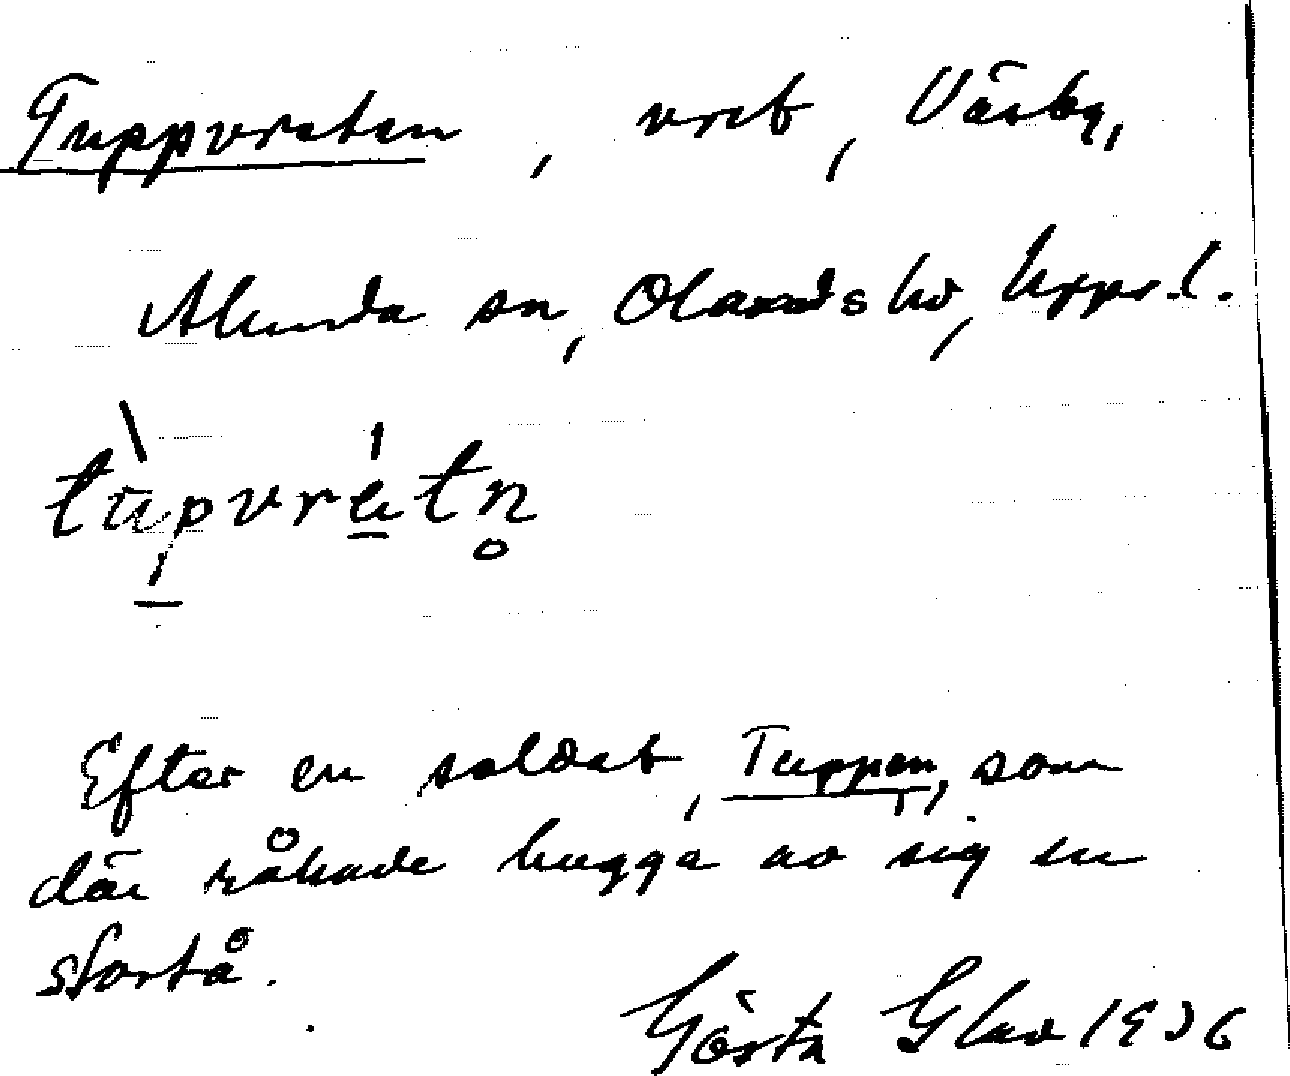 Tuppvreten, vret, Väsby,
Alunda sn, Olands hd, Uppl.
tùpvrétn
Efter en soldat, Tuppen, som
där råkade hugga av sig en
stortå.
Gösta Glav 1936